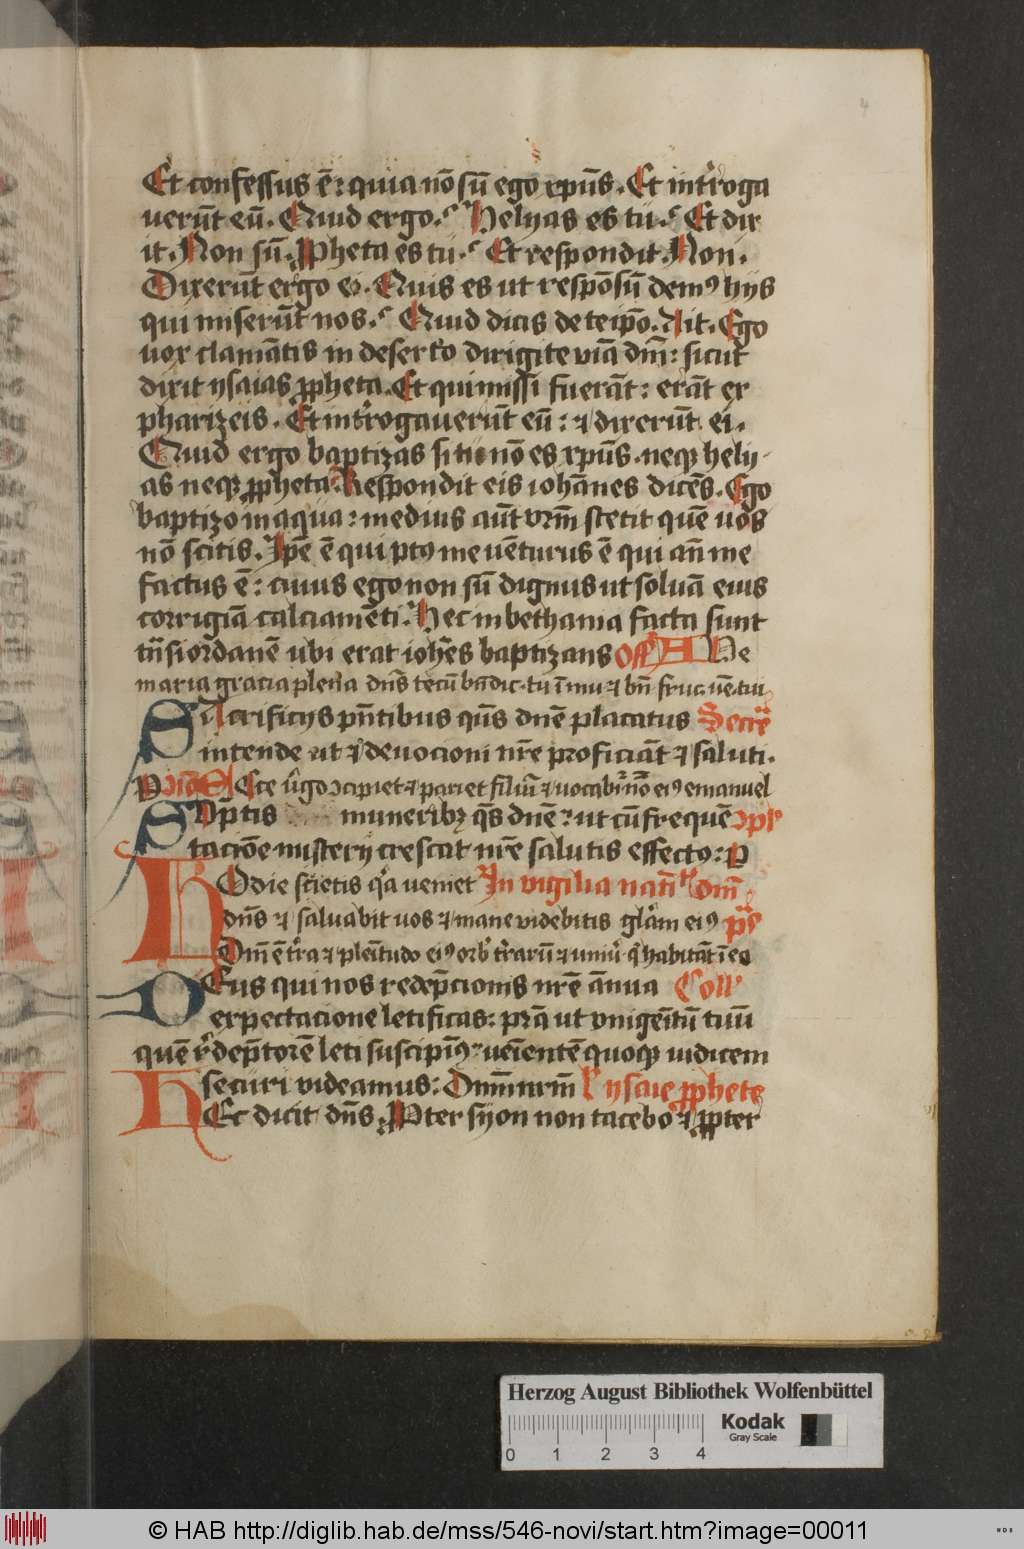 4
Et confessus ē: quia nō sū ego xpūs. Et int'roga
verūt eū. Quid ergo. Helyas es tu. Et dix
it. Non sū. ꝓpheta es tu. Et respondit. Non.
Dixerūt ergo ei. Quis es ut respōsū demꝰ hijs
qui miserūt nos. Quid dicis de teipō. Ait. Ego
vox clamātis in deserto dirigite viā dnī: sicut
dixit ysaias ꝓpheta. Et qui missi fuerāt: erāt ex
pharizeis. Et int'rogaverūt eū: ⁊ dixerūt ei.
Quid ergo baptizas si tu nō es xpūs. neqꝫ hely
as neqꝫ ꝓpheta. Respondit eis iohānes dicēs. Ego
baptizo in aqua: medius aūt vrm̄ stetit quē vos
nō scitis. Ipē ē qui ptꝰ me vēturus ē qui añ me
factus ē: cuius ego non sū dignus ut soluā eius
corrigiā calciamēti. Hec in bethania facta sunt
tn̄s iordanē ubi erat ioh̄es baptizans Off AUe
maria gracia plena dn̄s tecū bn̄dic. tu ī mu ⁊ bn̄ fruc. uē. tui
SAcrificijs pn̄tibus qs̄ dnē placatus Secre
intende ut ⁊ deuocioni nr̄e proficiāt ⁊ saluti.
Ecce v̓go ↄcipiet ⁊ pariet filiū ⁊ vocabit' nō eiꝰ emanuel
SUp̄tis muneribꝫ qs̄ dnē: ut cū frequē ↄpl'
tacōe misterij crescat nr̄e salutis effectꝰ: P
HOdie scietis qa veniet In vigilia nat̄ dnī
dn̄s ⁊ saluabit uos ⁊ mane videbitis glām eiꝰ ps̄
Dnī ē t'ra ⁊ plenitudo eiꝰ orb' t'rarū ⁊ uniu' q' habitāt ī eo
DEus qui nos redēpcionis nr̄e ānua Coll'
expectacione letificas: prā ut vnigenitū tuū
quē r̓dēptorē leti suscipimꝰ: uenientē quoqꝫ iudicem
securi videamus: Dnm̄ nrm̄ ysaie ꝓphete
HEc dicit dn̄s. Pter syon non tacebo ⁊ ꝓpter
Herzog August Bibliothek Wolfenbüttel
0 1 2 3 4
Kodak
Gray Scale
© HAB http://diglib.hab.de/mss/546-novi/start.htm?image=00011